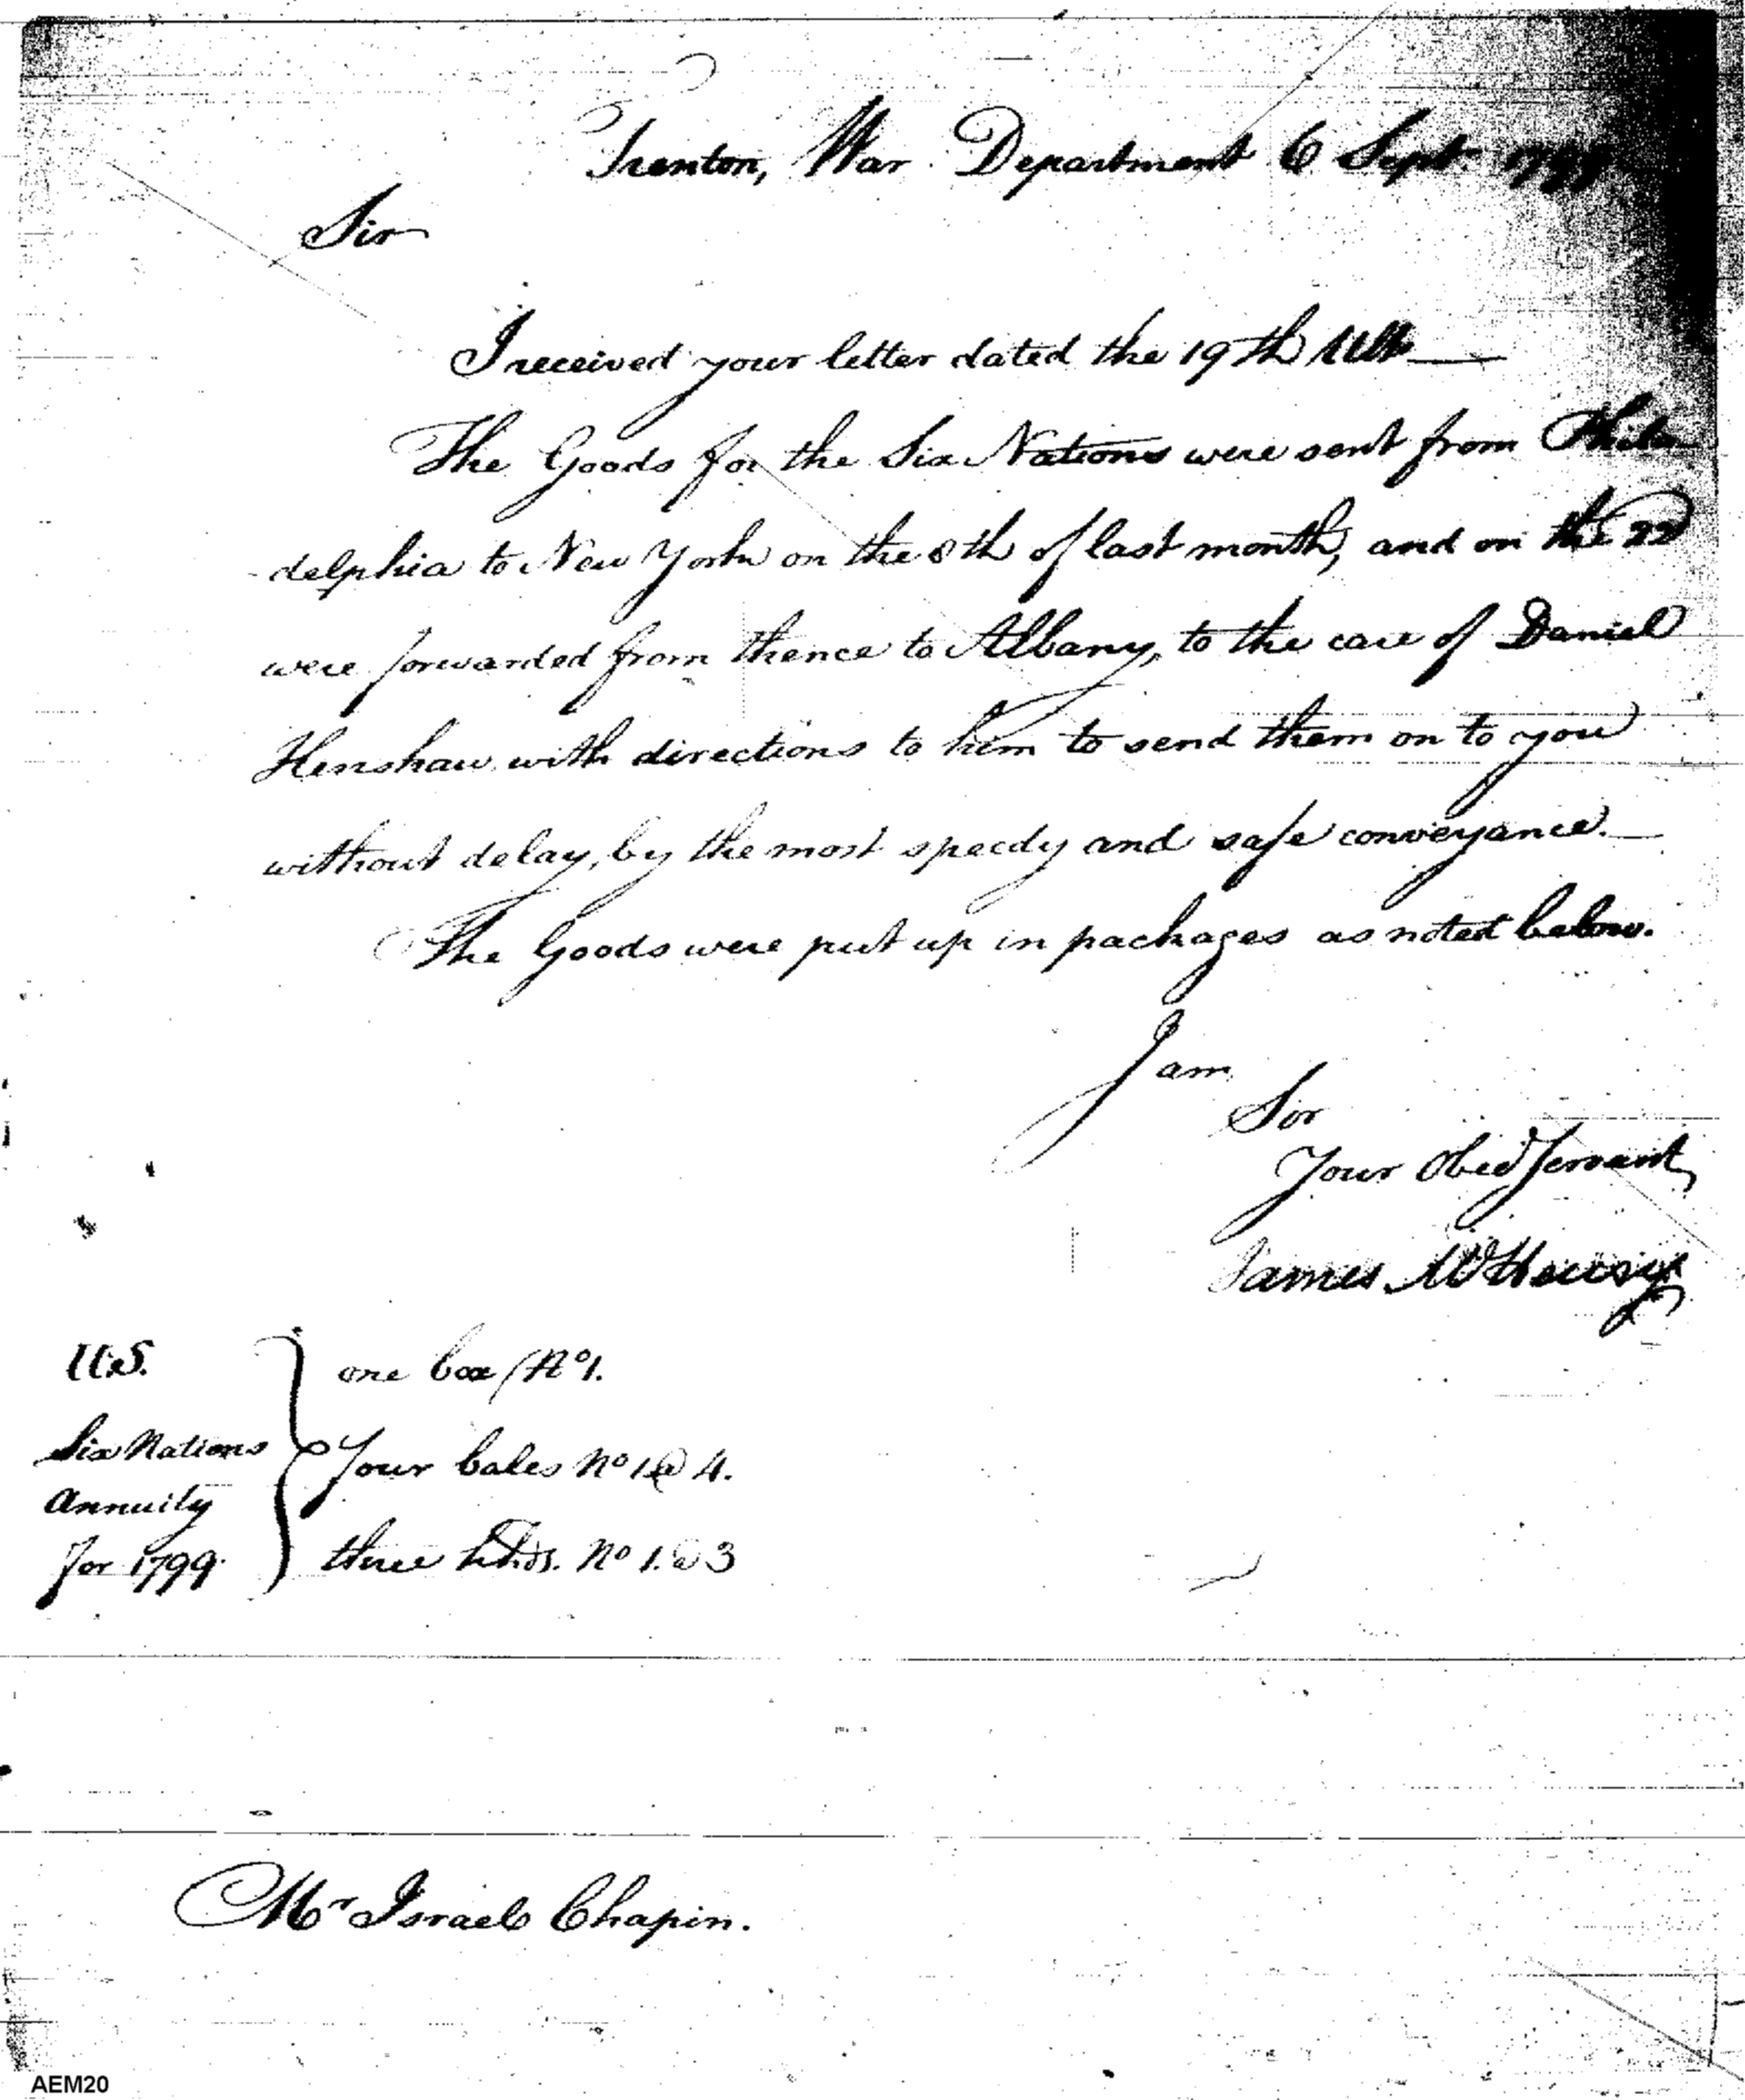 Trenton, War Department 6 Sept. 1799
Sir
I received your letter dated the 19th Ulto
The Goods for the Six Nations were sent from Phila
delphia to New York on the 8th of last month, and on the 22d
were forwarded from thence to Albany, to the care of Daniel
Henshaw with directions to him to send them on to you
without delay, by the most speedy and safe conveyance.
The Goods were put up in packages as noted below.
I am
Sir
Your Obed Servant
James McHenry
U.S.
Six Nations
Annuity
for 1799.
one box No 1.
four bales No 1 @ 4.
three hhds. No 1. @ 3
Mr Israel Chapin.
AEM20